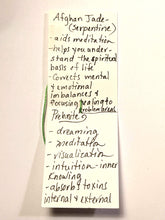 Afghan Jade -
(Serpentine)
- aids meditation
- helps you under-
stand the spiritual
basis of life
- Corrects mental
& emotional
imbalances &
focusing healing to
problem areas
Prehnite
- dreaming
meditation
- visualization
- intuition - inner
knowing
- absorbs toxins
internal & external